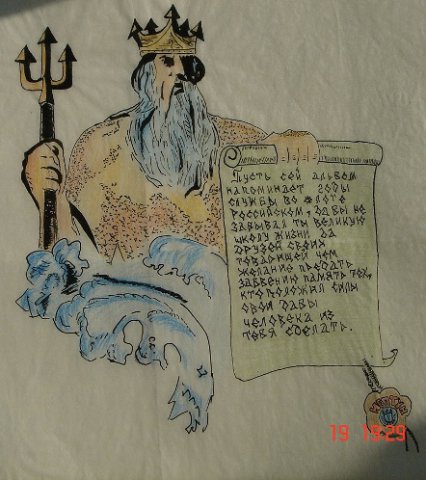 Пусть сей альбом
напоминает годы
службы во флоте
российском, дабы не
забывал ты великую
школу жизни да
друзей своих
товарищей чем
желание предать
забвению память тех,
кто положил силы
свои дабы
человека из
тебя сделать.
19 19:29